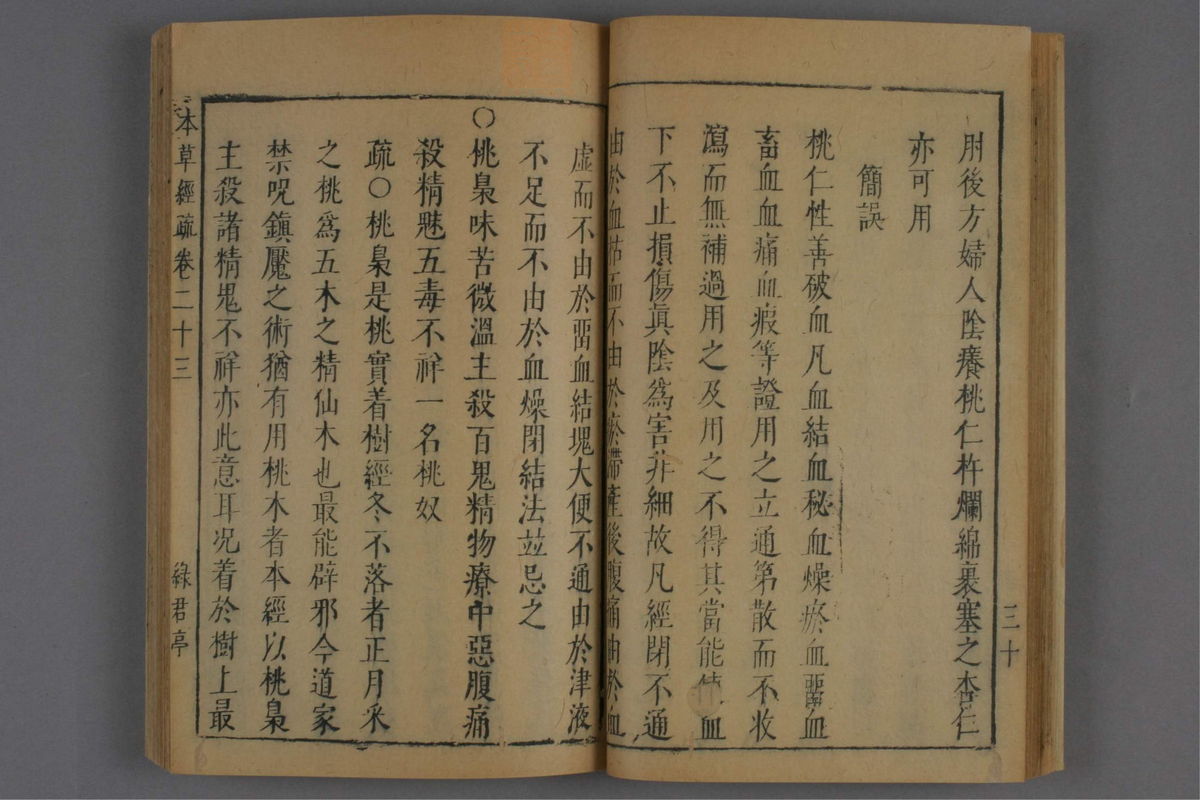 三十
肘後方婦人陰癢桃仁杵爛綿裹塞之杏仁
亦可用
簡誤
桃仁性善破血凡血結血秘血燥瘀血畱血
畜血血痛血瘕等證用之立通第散而不收
瀉而無補過用之及用之不得其當能使血
下不止損傷眞陰爲害非細故凡經閉不通
由於血枯而不由於瘀滯產後腹痛由於血
虛而不由於畱血結塊大便不通由於津液
不足而不由於血燥閉結法並忌之
○桃梟味苦微溫主殺百鬼精物療中惡腹痛
殺精魅五毒不祥一名桃奴
疏○桃梟是桃實着樹經冬不落者正月采
之桃爲五木之精仙木也最能辟邪今道家
禁呪鎮魘之術猶有用桃木者本經以桃梟
主殺諸精鬼不祥亦此意耳况着於樹上最
本草經疏卷二十三
綠君亭